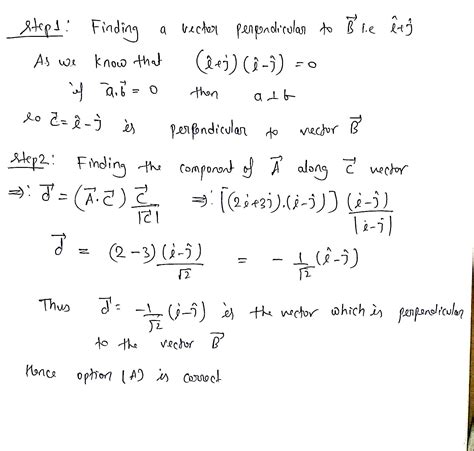 Step1: Finding a vector perpendicular to B⃗ i.e î+ĵ
As we know that (î+ĵ)(î-ĵ) = 0
if a⃗.b⃗ = 0 then a⊥b
so c⃗ = î-ĵ is perpendicular to vector B⃗
Step2: Finding the component of A⃗ along c⃗ vector
⇒: d⃗ = (A⃗.c⃗) c⃗/|c⃗| ⇒: [(2î+3ĵ).(î-ĵ)] (î-ĵ)/|î-ĵ|
d⃗ = (2-3)(î-ĵ)/√2 = -1/√2 (î-ĵ)
Thus d⃗ = -1/√2 (î-ĵ) is the vector which is perpendicular
to the vector B⃗
Hence option (A) is correct